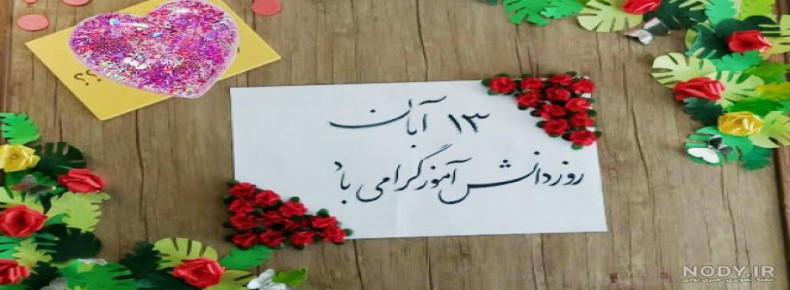 ۱۳ آبان
روز دانش آموز گرامی باد
NODY.IR